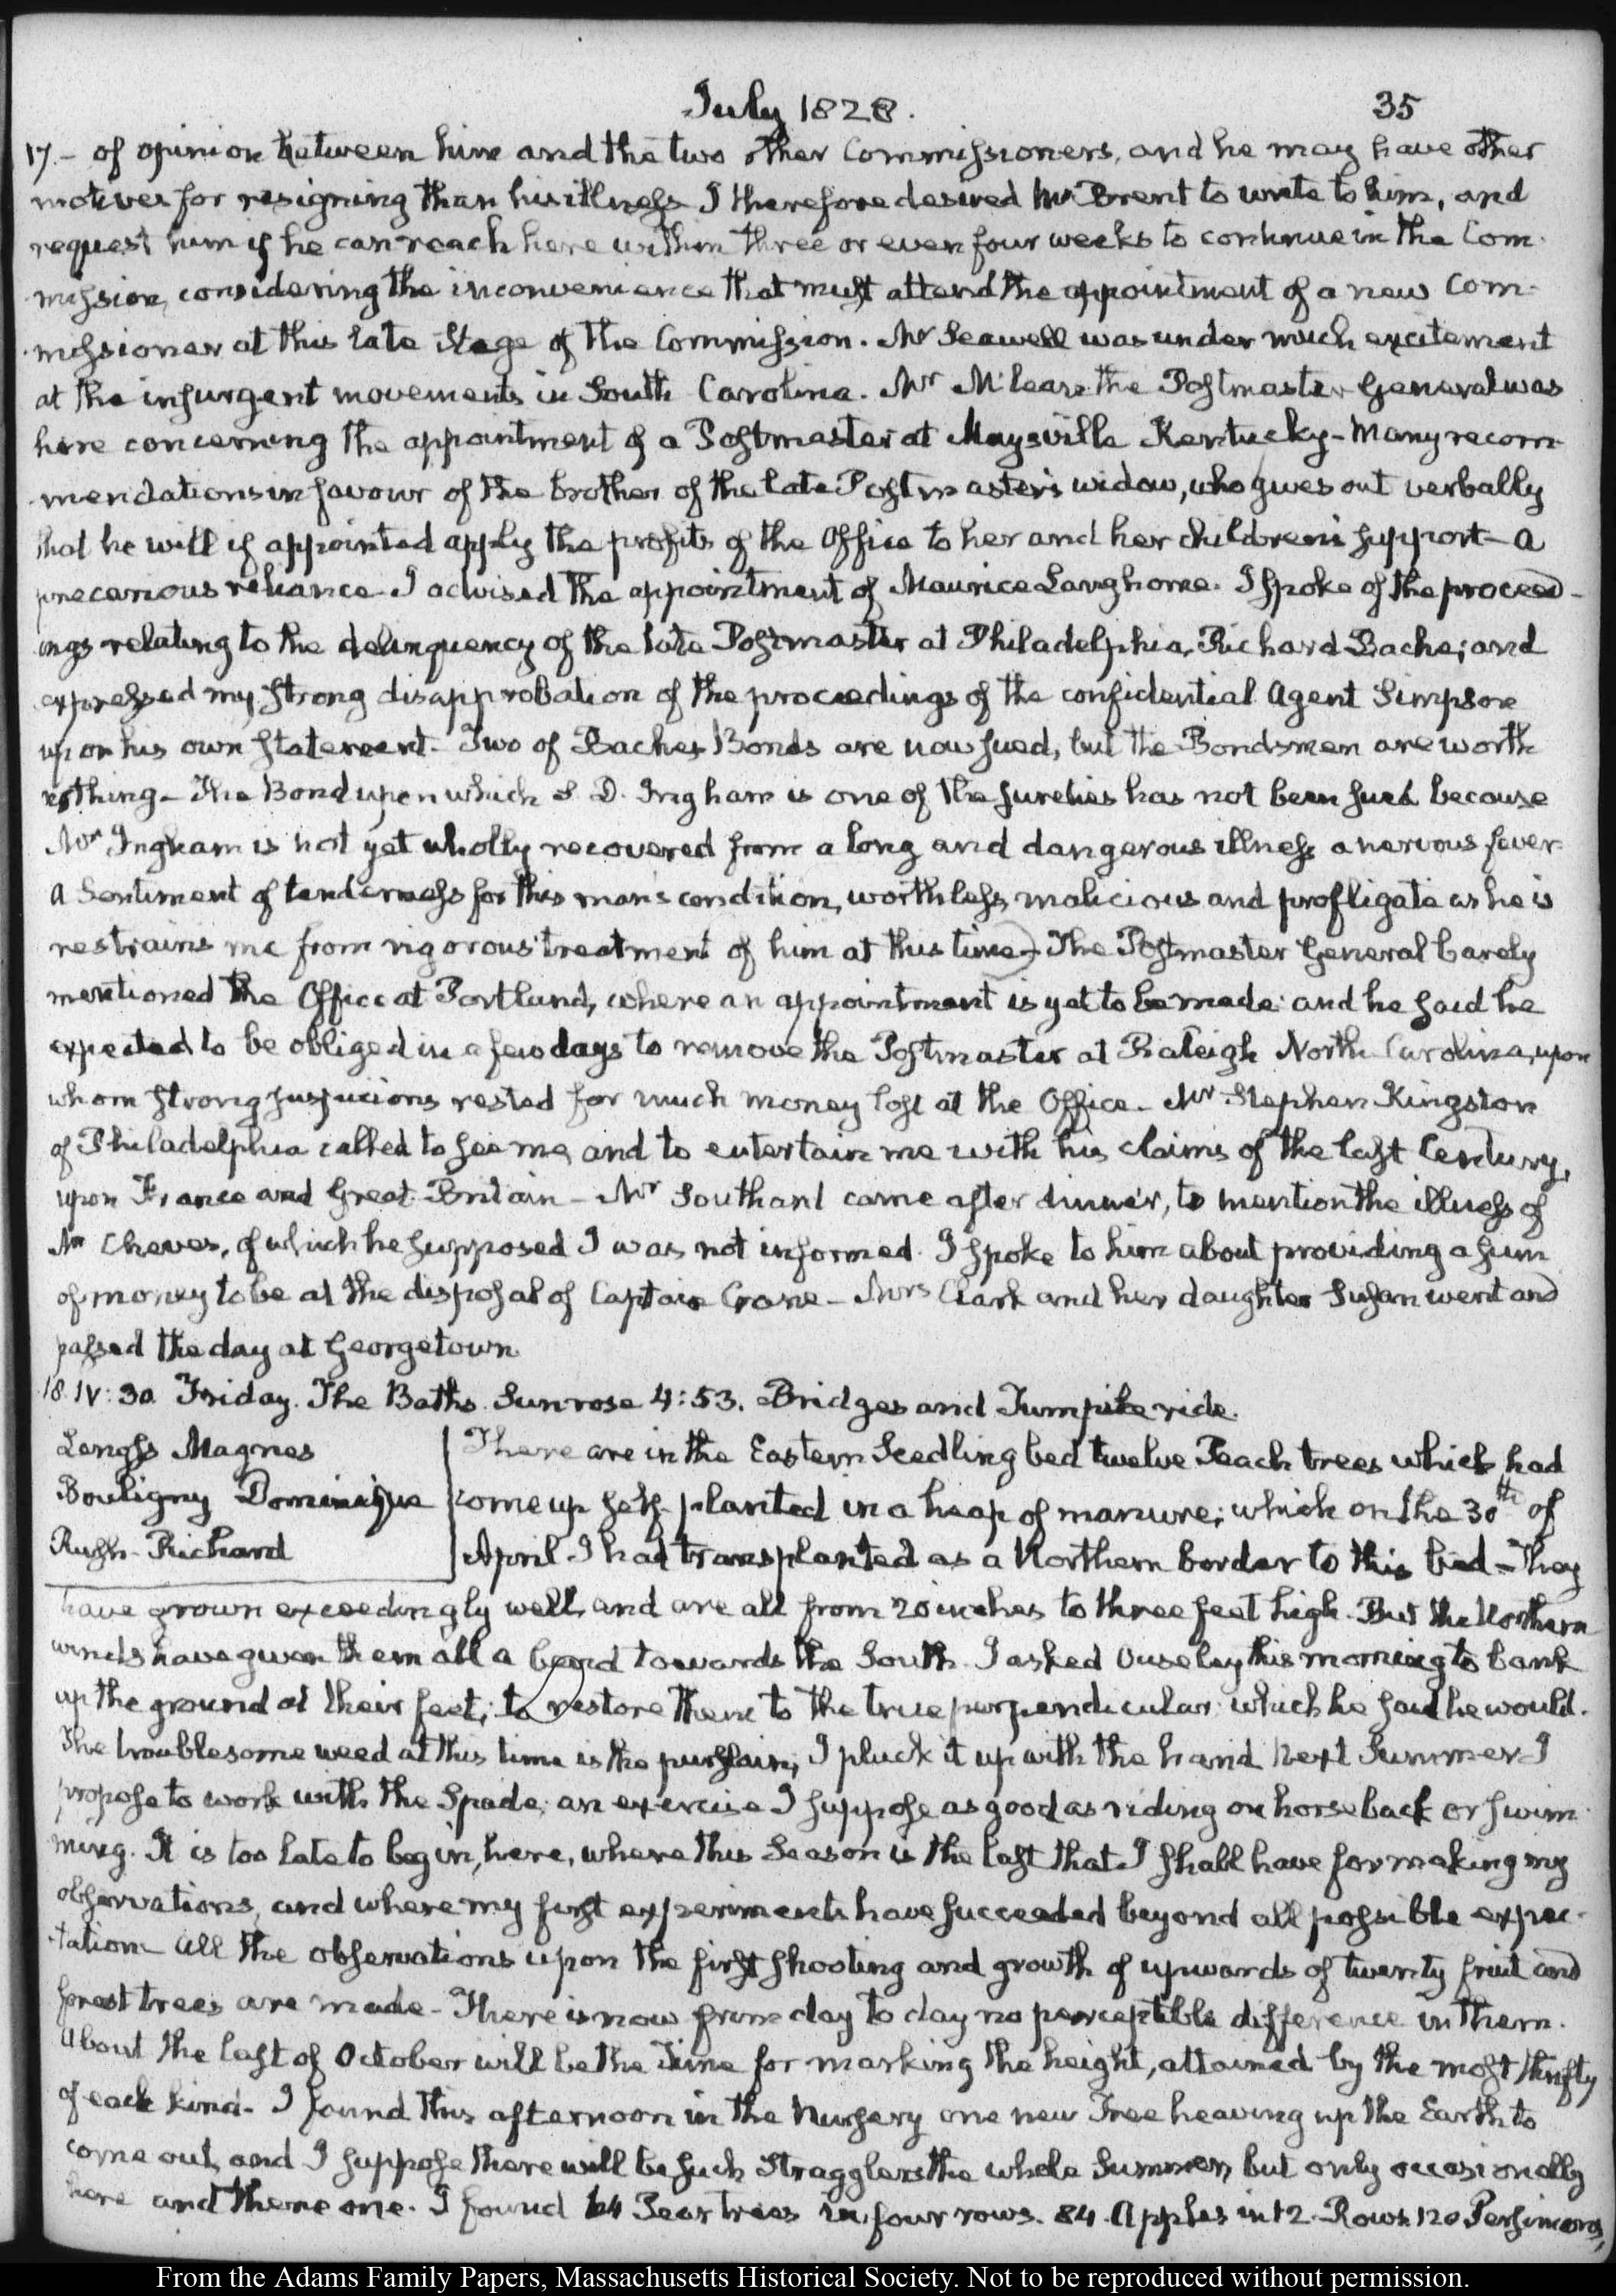 July 1828. 35
17.- of opinion between him and the two other Commissioners, and he may have other
motives for resigning than his illness I therefore desired Mr Brent to write to him, and
request him if he can reach here within three or even four weeks to continue in the Com-
mission, considering the inconvenience that must attend the appointment of a new Com-
missioner at this late Stage of the Commission. Mr Seawell was under much excitement
at the insurgent movements in South Carolina. Mr McLean the Postmaster General was
here concerning the appointment of a Postmaster at Maysville Kentucky- Many recom-
mendations in favour of the brother of the late Postmaster's widow, who gives out verbally
that he will if appointed apply the profits of the Office to her and her children's support- a
precarious reliance- I advised the appointment of Maurice Langhorne. I spoke of the proceed-
ings relating to the delinquency of the late Postmaster at Philadelphia, Richard Bache; and
expressed my strong disapprobation of the proceedings of the confidential Agent Simpson
upon his own statement- Two of Baches Bonds are now sued, but the Bondsmen are worth
nothing- The Bond upon which S. D. Ingham is one of the sureties has not been sued because
Mr Ingham is not yet wholly recovered from a long and dangerous illness a nervous fever.
A Sentiment of tenderness for this man's condition, worthless, malicious and profligate as he is
restrains me from rigorous treatment of him at this time- The Postmaster General barely
mentioned the Office at Portland, where an appointment is yet to be made: and he said he
expected to be obliged in a few days to remove the Postmaster at Raleigh North Carolina, upon
whom strong suspicions rested for much money lost at the Office- Mr Stephen Kingston
of Philadelphia called to see me, and to entertain me with his claims of the last Century,
upon France and Great-Britain- Mr Southard came after dinner, to mention the illness of
Mr Cheves, of which he supposed I was not informed. I spoke to him about providing a sum
of money to be at the disposal of Captain Crane- Mrs Clark and her daughter Susan went and
passed the day at Georgetown.
18. IV:30. Friday. The Baths. Sun rose 4:53. Bridges and Turnpike ride.
Magnes
Bouligny Dominique
Rush- Richard
There are in the Eastern Seedling bed twelve Peach trees which had
come up self-planted in a heap of manure; which on the 30th of
April I had transplanted as a Northern border to this bed- They
have grown exceedingly well, and are all from 20 inches to three feet high. But the Northern
winds have given them all a bend towards the South. I asked Ouseley this morning to bank
up the ground at their feet; to restore them to the true perpendicular: which he said he would.
The troublesome weed at this time is the purslain; I pluck it up with the hand Next Summer I
propose to work with the Spade; an exercise I suppose as good as riding on horseback or swim-
ming. It is too late to begin, here, where this Season is the last that I shall have for making my
observations, and where my first experiments have succeeded beyond all possible expec-
tation- All the observations upon the first shooting and growth of upwards of twenty fruit and
forest trees are made- There is now from day to day no perceptible difference in them.
About the last of October will be the Time for marking the height, attained by the most thrifty
of each kind- I found this afternoon in the Nursery one new Tree heaving up the Earth to
come out, and I suppose there will be such Stragglers the whole Summer, but only occasionally
here and there one. I found 64 Pear trees in four rows. 84 Apples in 12 Rows. 120 Persimons,
From the Adams Family Papers, Massachusetts Historical Society. Not to be reproduced without permission.